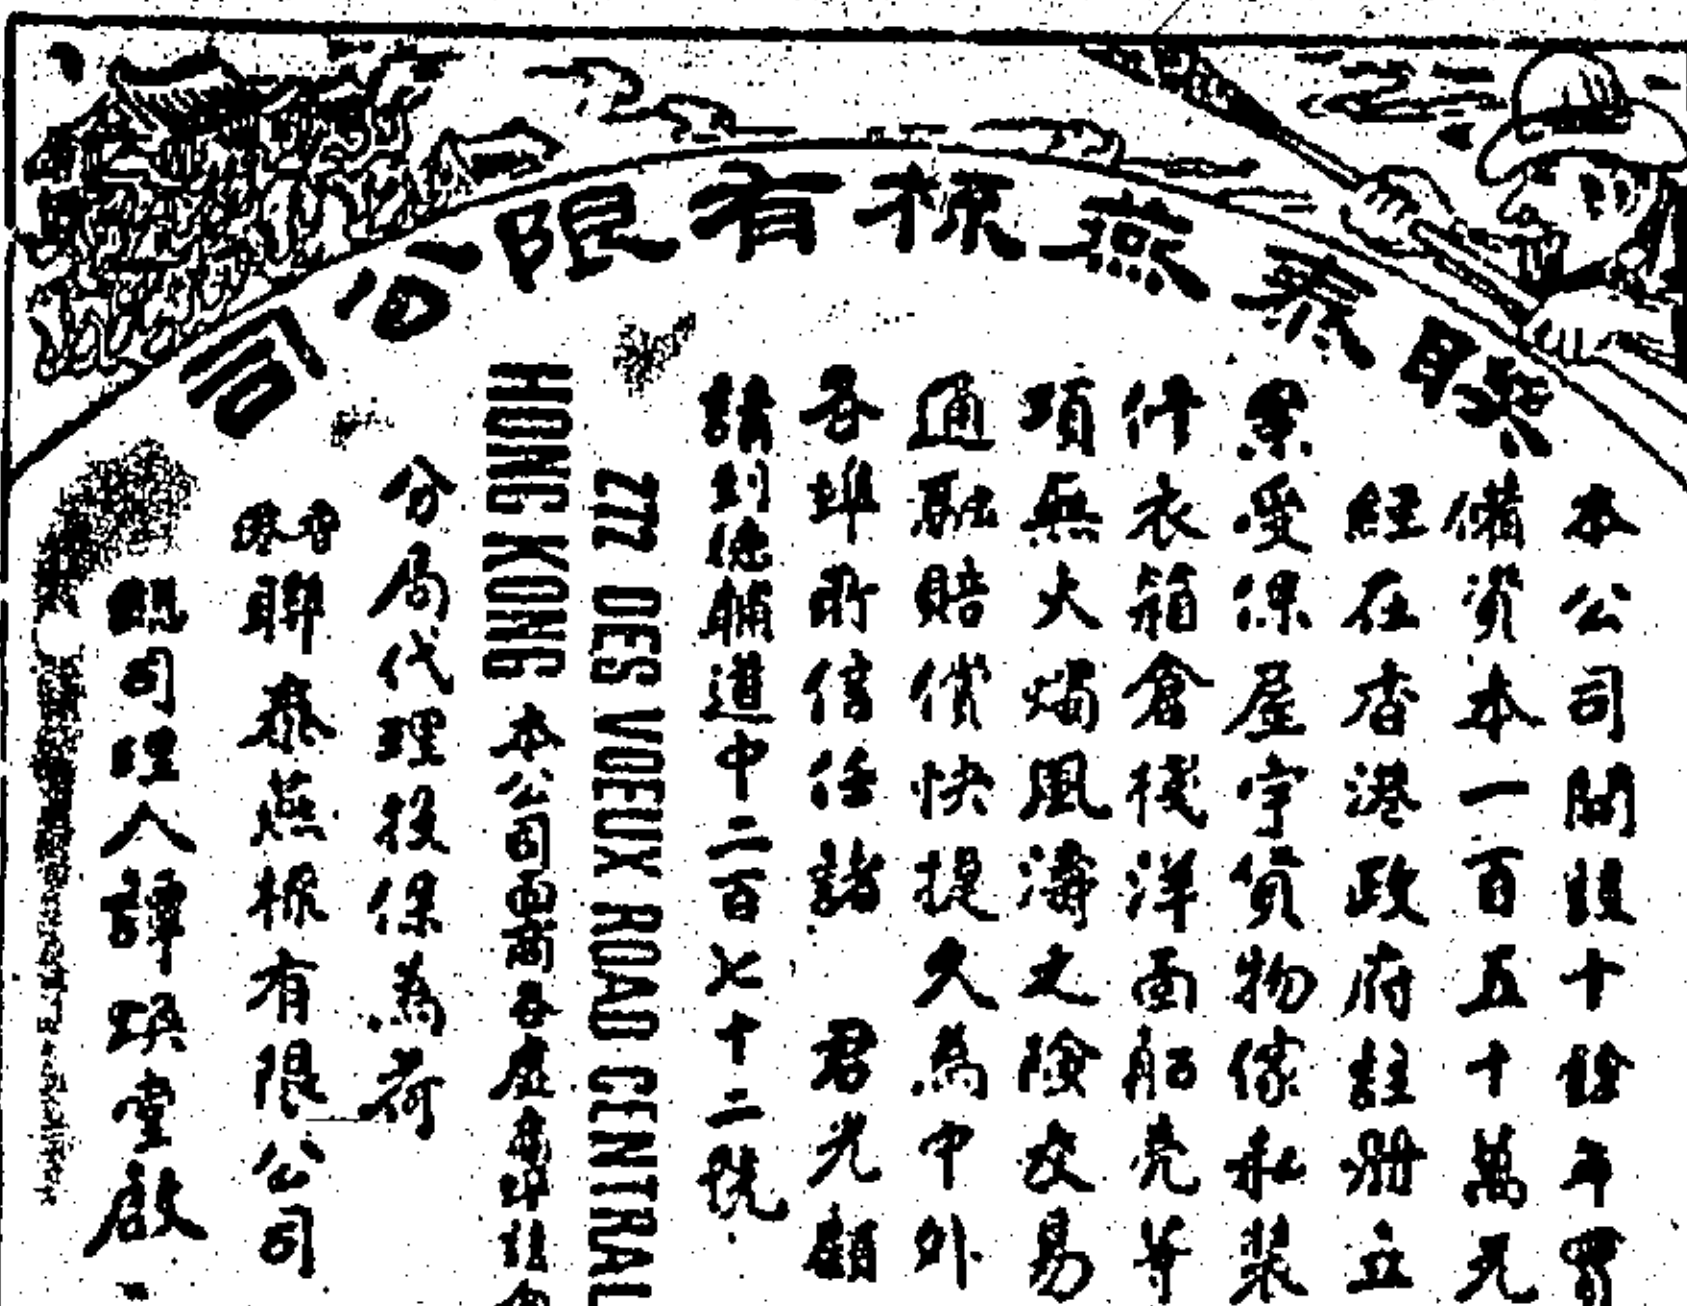 聯泰燕梳有限公司
本公司開設十餘年實
備資本一百五十萬元
經在香港政府註册立
案受保屋宇貨物傢私裝
修衣箱倉棧洋面船壳等
項無火燭風濤之險交易
通融賠償快捷久為中外
各埠所信任諸 君光顧
請到德輔道中二百七十二號
277 DES VOEUX ROAD CENTRAL
HONG KONG 本公司 各處 埠設
分局代理投保為荷
香港聯泰燕梳有限公司
總司理人譚煥堂啟